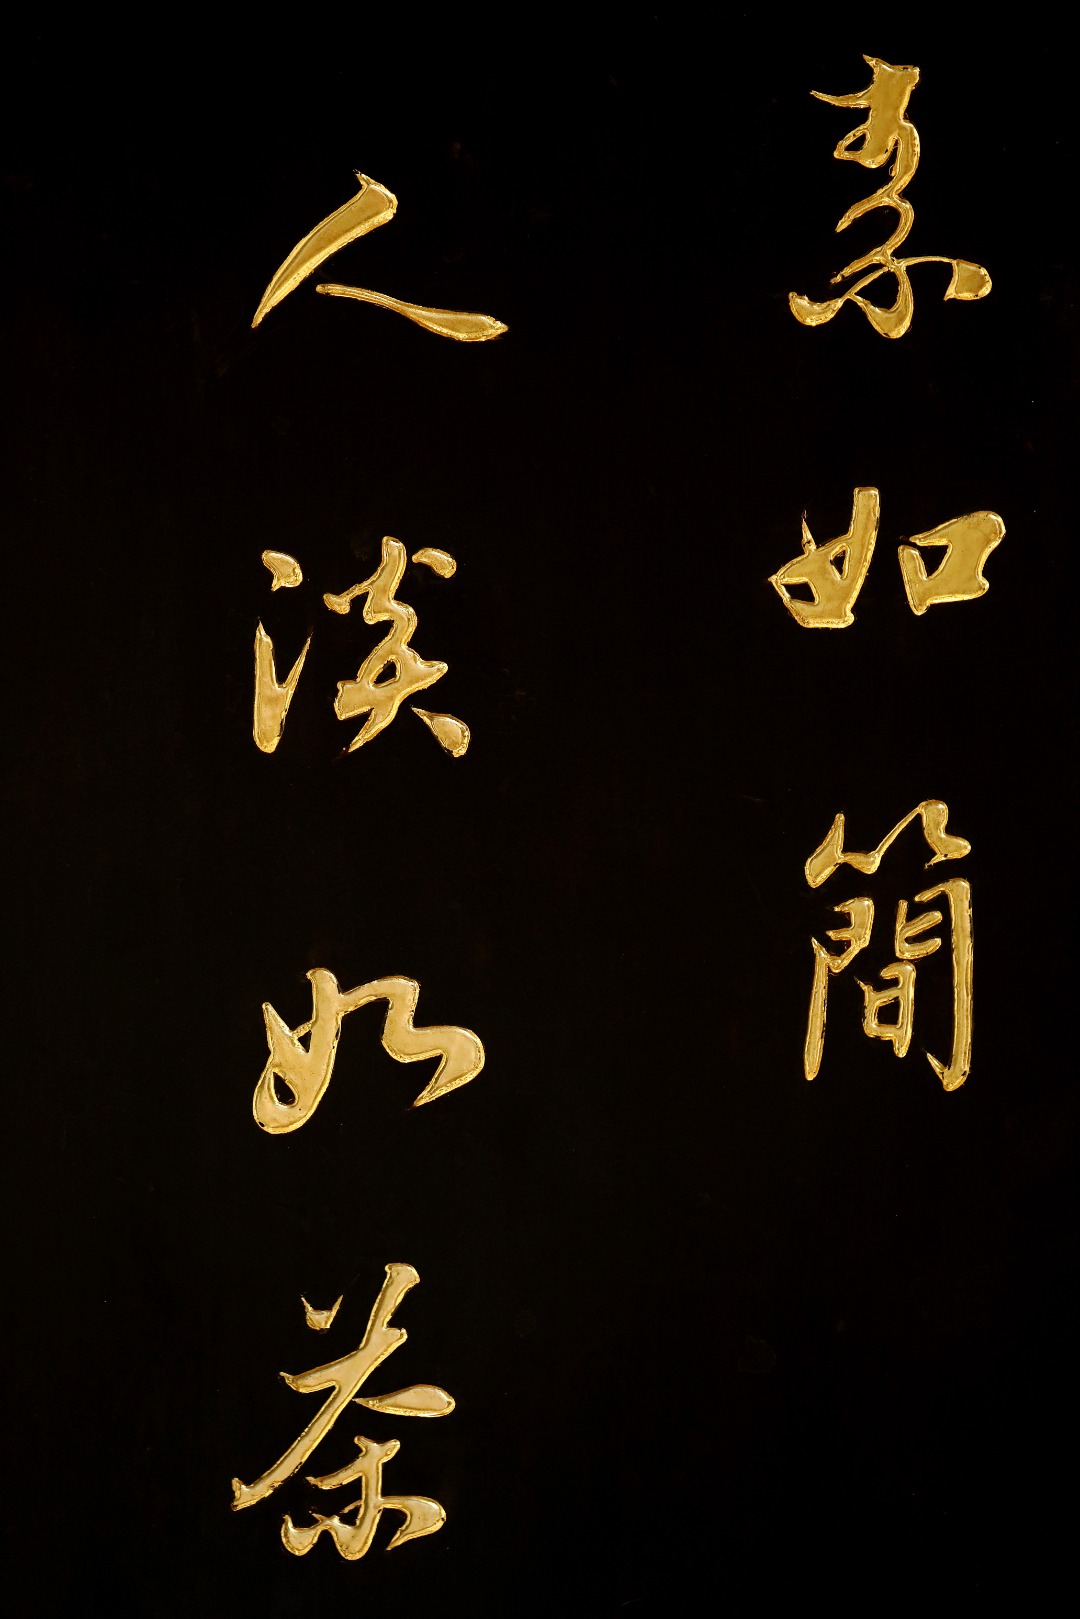 素如簡
人淡如茶